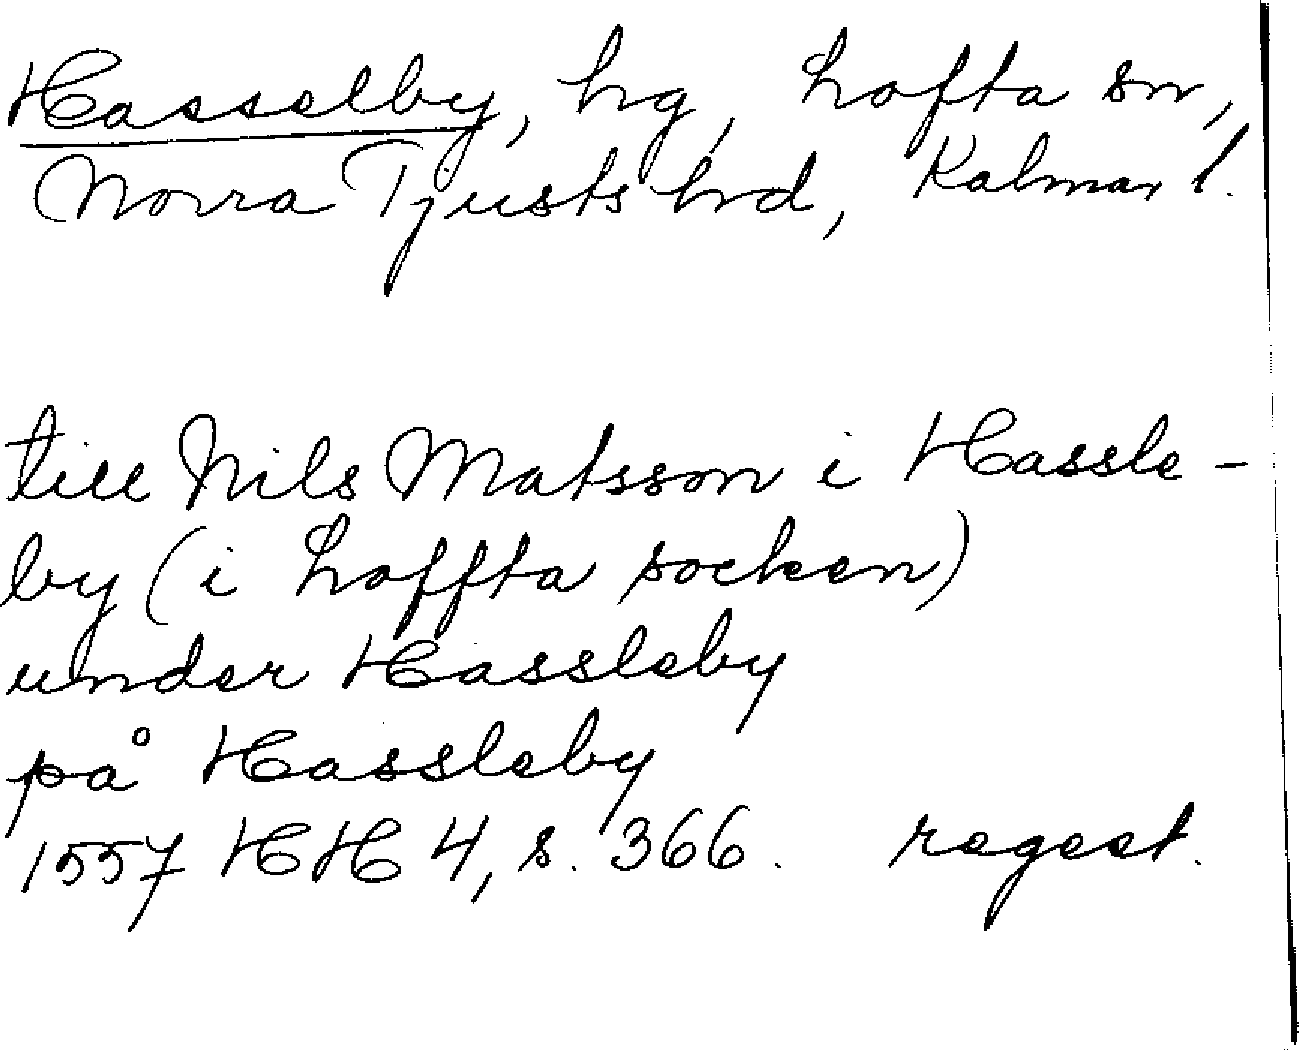 Hasselby, hg, Lofta sn,
Norra Tjusts hd, Kalmar l.
till Nils Matsson i Hassle-
by (i Loffta socken)
under Hassleby
på Hassleby
1557 HH 4, s. 366. regest.